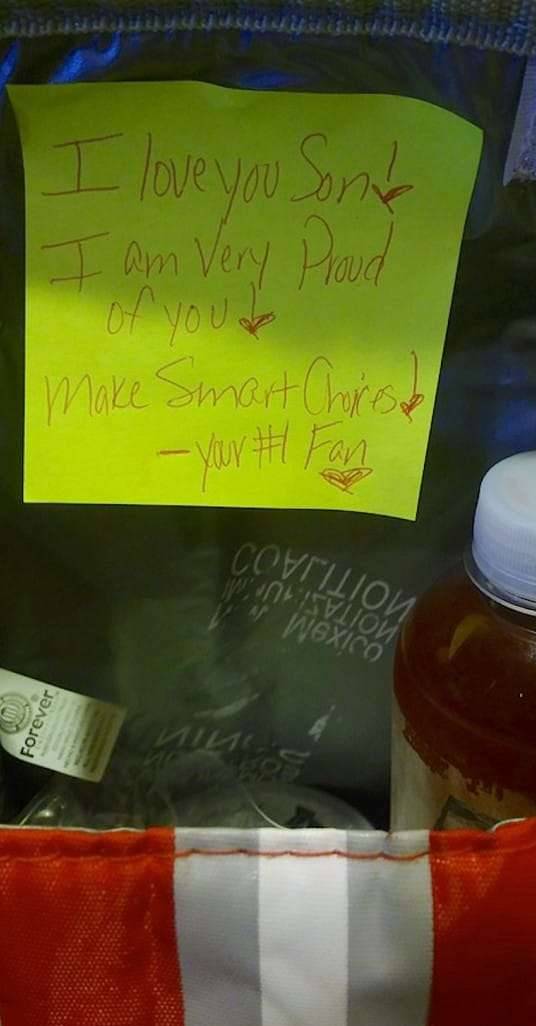 I love you Son!
I am Very Proud
of you!
Make Smart Choices!
- your #1 Fan
COALITION
IZATION
Mexico
Forever